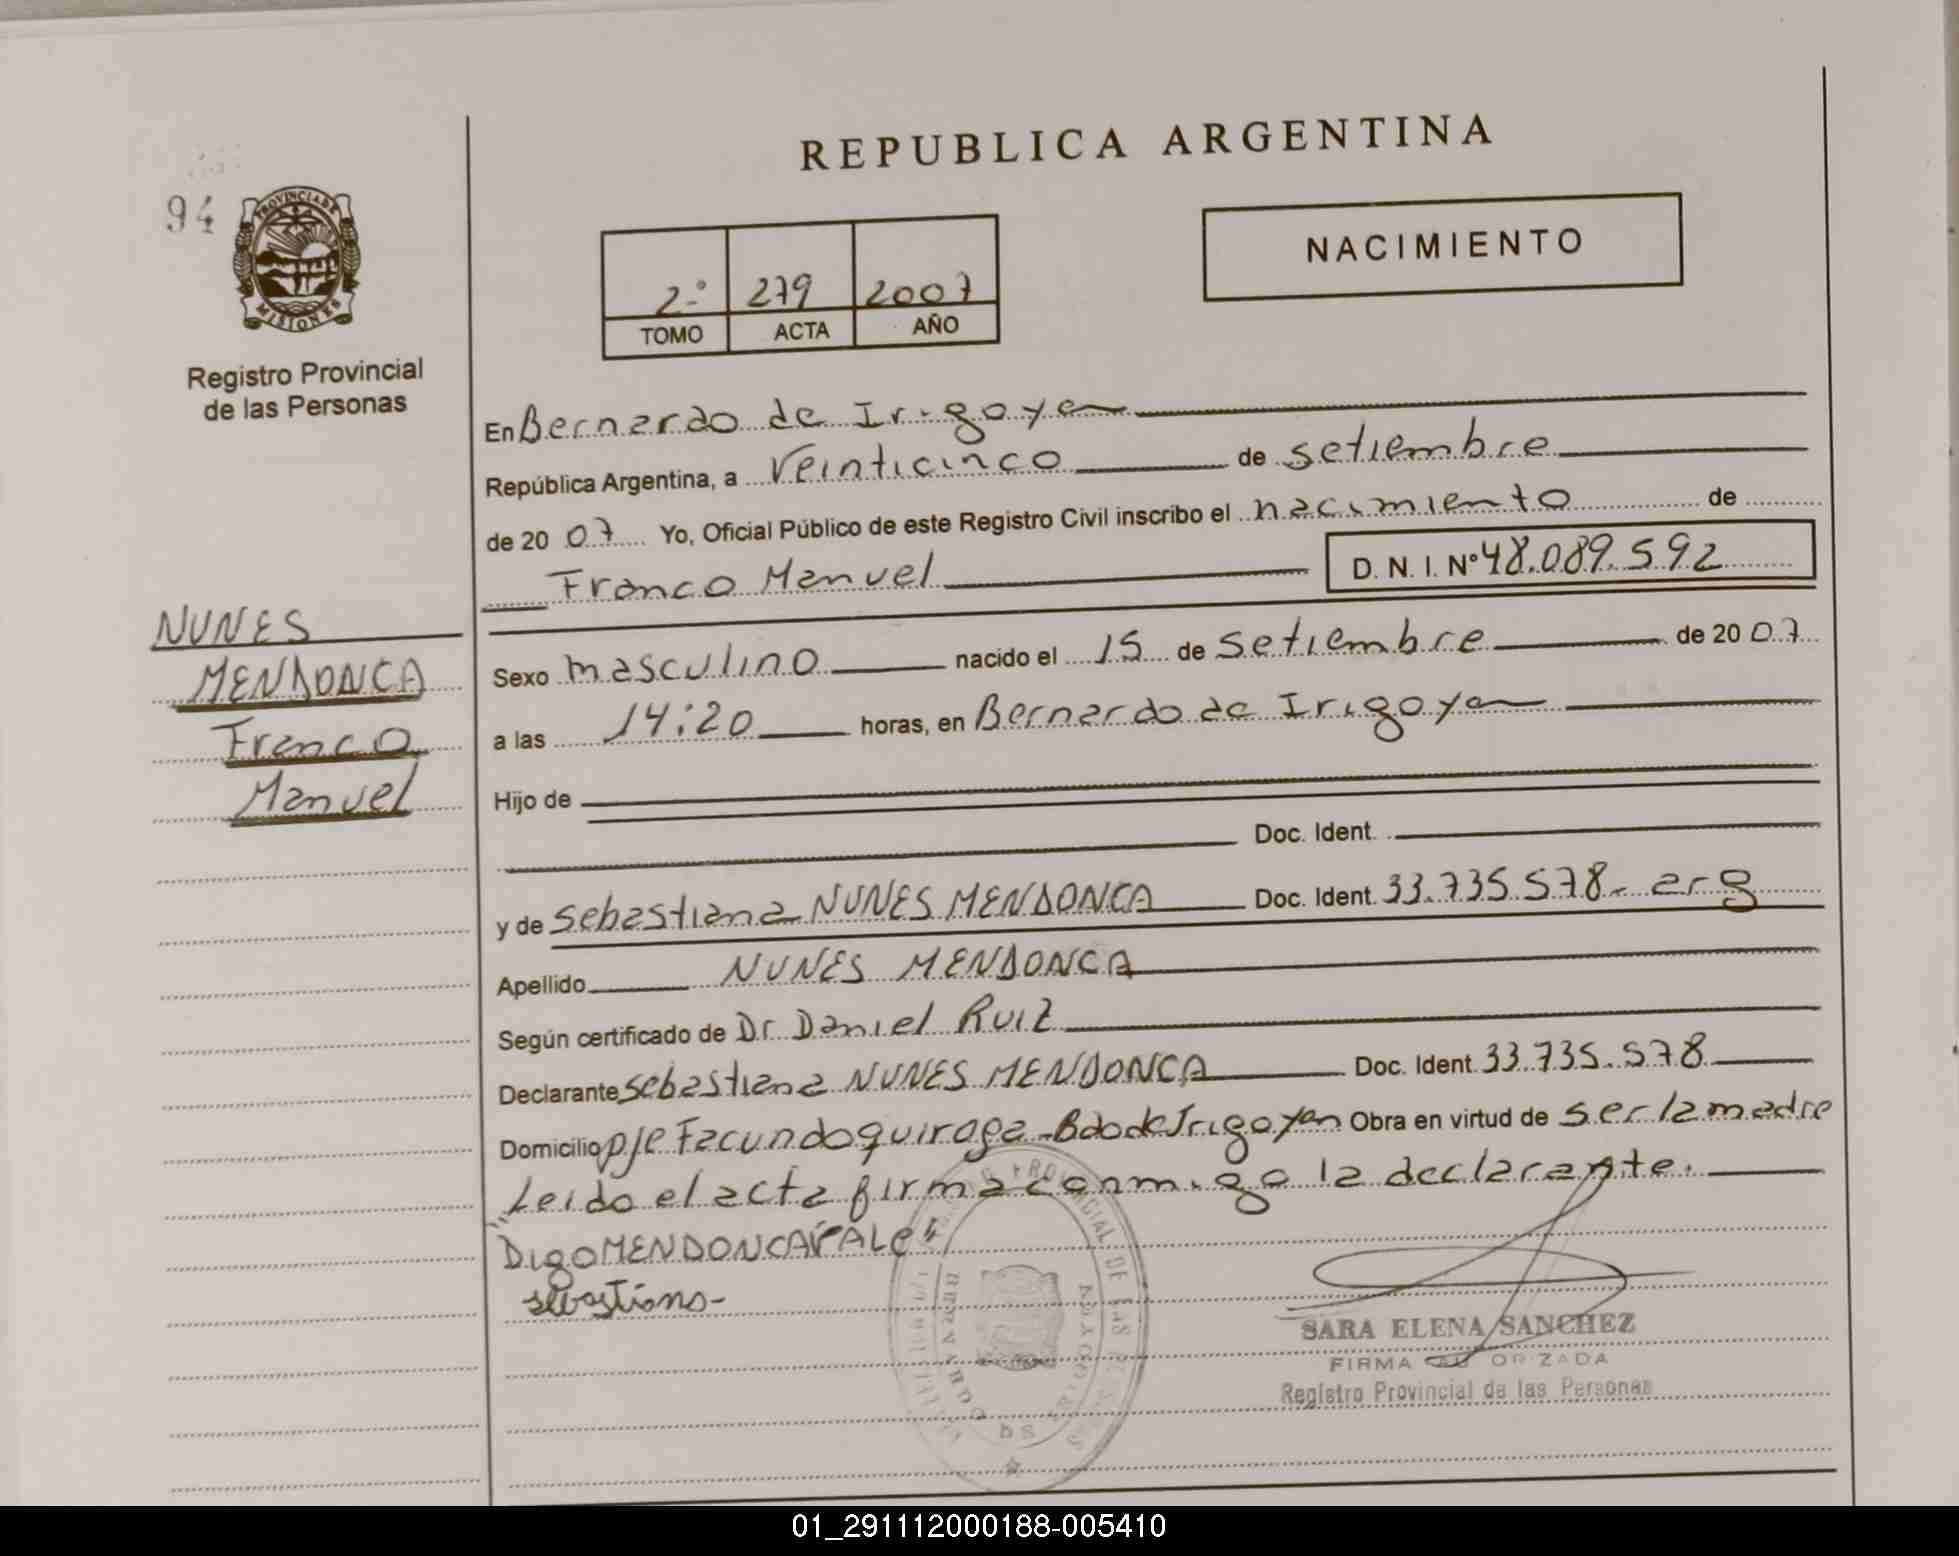 REPUBLICA ARGENTINA
94
PROVINCIA DE MISIONES
Registro Provincial
de las Personas
NACIMIENTO
2º 279 2007
TOMO ACTA AÑO
NUNES
MENDONCA
Franco
Manuel
En Bernardo de Irigoyen
República Argentina, a Veinticinco de setiembre
de 2007 Yo, Oficial Público de este Registro Civil inscribo el nacimiento de
Franco Manuel D. N. I. Nº 48.089.592
Sexo masculino nacido el 15 de setiembre de 2007
a las 14:20 horas, en Bernardo de Irigoyen
Hijo de
Doc. Ident.
y de Sebastiana NUNES MENDONCA Doc. Ident. 33.735.578- arg
Apellido NUNES MENDONCA
Según certificado de Dr Daniel Ruiz
Declarante Sebastiana NUNES MENDONCA Doc. Ident. 33.735.578
Domicilio pje Facundo quiroga-Bdo de Irigoyen Obra en virtud de ser la madre
Leido el acta firma conmigo la declarante.
"Digo MENDONCA VALE"
sebastiana-
SARA ELENA SANCHEZ
FIRMA AUTORIZADA
Registro Provincial de las Personas
01_291112000188-005410